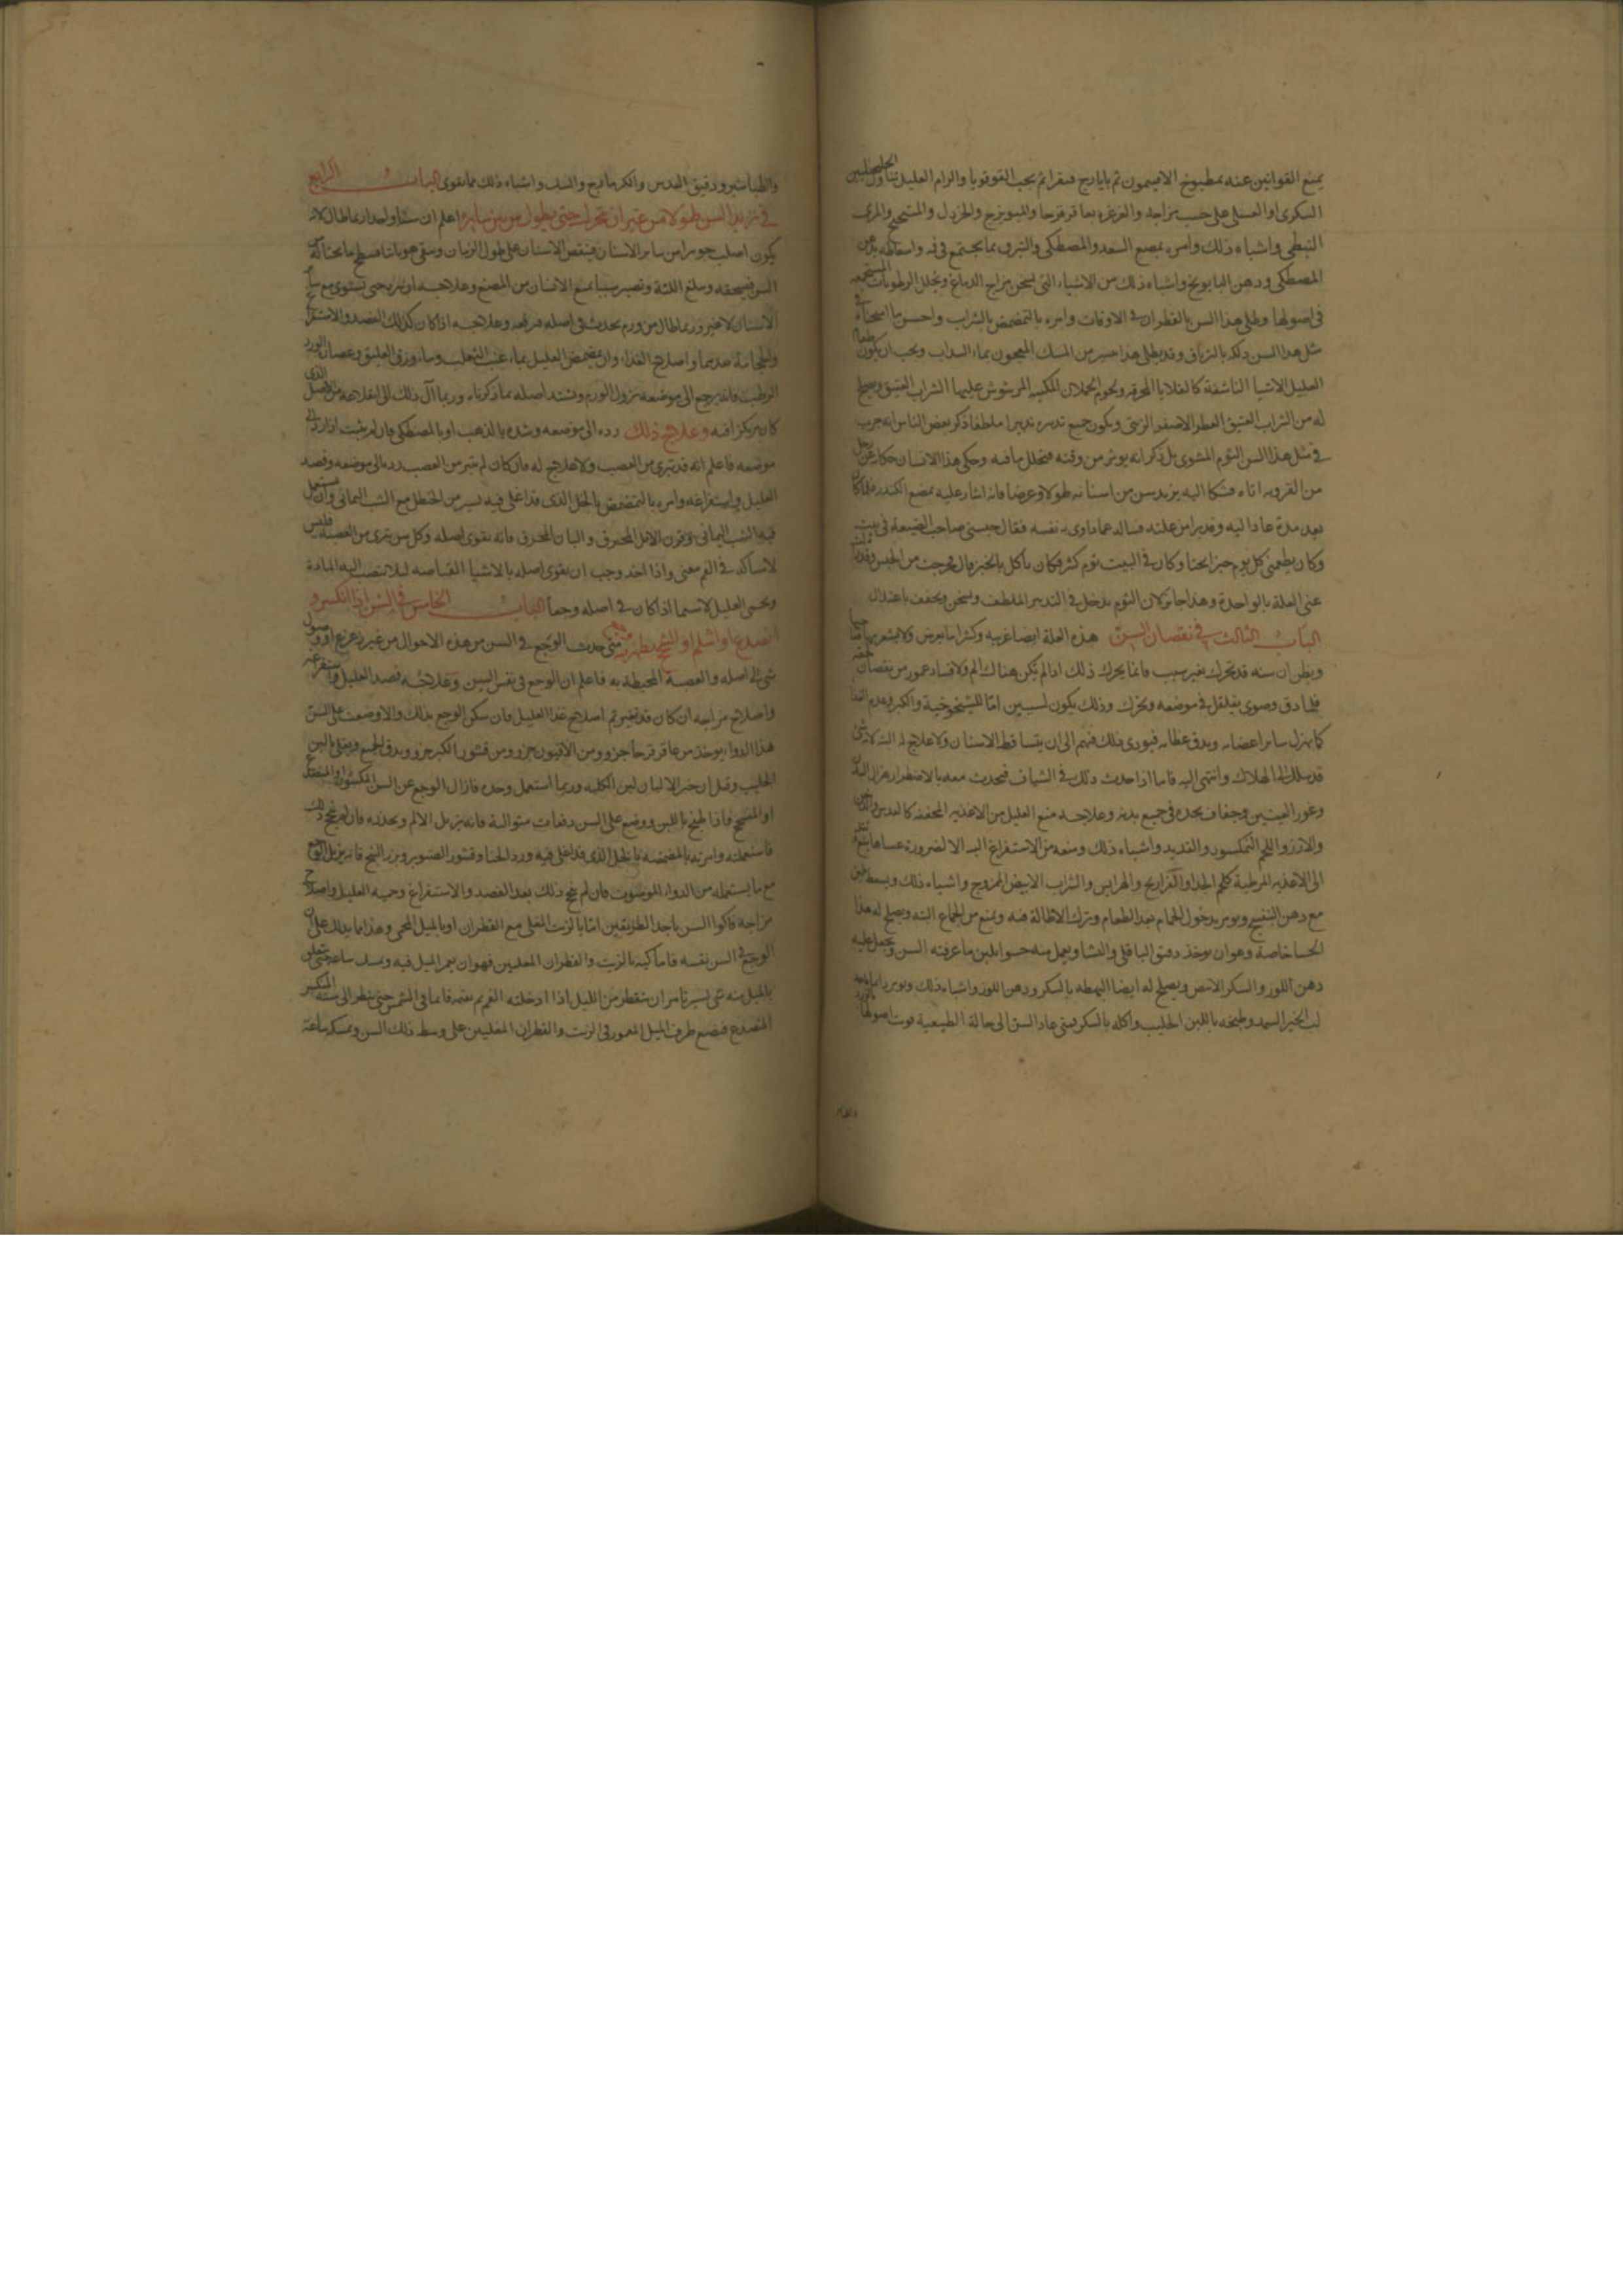 يمنع القوانين عنه بمطبوخ الافتيمون ثم بايارج فيقرا ثم بحب القوقويا والزام العليل تناول الجلنجبين
السكرى او العسلى على حسب مزاجه والغرغره بعاقرقرحا والميويزج والخردل والمرى
النبطى واشباه ذلك وامره بمضع السعد والمصطكى والتبرق بما يجتمع فى فمه بدهن
المصطكى ودهن البابونج واشباه ذلك من الاشياء التى تسخن مزاج الدماغ وتحلل الرطوبات
فى اصولها وطلى هذا السن بالقطران فى الاوقات وامره بالتمضمض بالشراب واحسن ما
مثل هذا السن دلكه بالترياق وقد يطلى هذا من المسك المعجون بماء السداب ويجب ان يكون طعام
العليل الاشيا الناشفة كالقلايا المحرقه ولحوم الحملان المرشوش عليها الشراب العتيق ويصلح
له من الشراب العتيق العطر الاصفر الزيتى ويكون جميع تدبيره تدبيرا ملطفا ذكر بعض الناس انه جرب
فى مثل هذا السن الثوم المشوى بل ذكر انه يوثر من وقته فيحلل ما فيه وحكى هذا الانسان حكاية عن رجل
من القرويه اتاه فشكا اليه تزيد سن من اسنانه طولا وعرضا فانه اشار عليه بمضع الكندر فلما كان
بعد مدة عاد اليه وقد برا من علته فساله عما داوى به نفسه فقال حبسنى صاحب الضيعة فى بيت
وكان يطعمنى كل يوم خبز وكان فى البيت ثوم كثير فكان ياكل بالخبز قال فخرجت من الحبس وقد زالت
عنى العلة بالواحدة وهذا جائز لان الثوم يدخل فى التدبير الملطف ويسخن ويجفف باعتدال
الباب الثالث فى نقصان السن هذه العلة ايضا غريبه وكثيرا ما يعرض ولا يشعر بها
ويظن ان سنه قد تحرك بغير سبب فانما يحرك ذلك اذا لم يكن هناك الم ولا فساد عمور من نقصان
فلما دق وضوى تقلقل فى موضعه وتحرك وذلك يكون لسببين اما للشيخوخية والكبر وعدم الغذا
كما يهزل ساير اعضايه ويدق عظامه فيودى ذلك فيهم الى ان يتساقط الاسنان ولا علاج له البته لانه شى
قد سلك الى الهلاك وانتهى اليه فاما اذا حدث ذلك فى الشباب فيحدث معه بالاضطرار هزال البدن
وغور العينين وجفاف يجده فى جميع بدنه وعلاجه منع العليل من الاغذيه المجففه كالعدس والدخن
والارز واللحم النمكسود والقديد واشباه ذلك ومنعه من الاستفراغ البته الا لضرورة
الى الاغذيه المرطبة كلحم الجدا والفراريج والهرايس والشراب الابيض الممزوج واشباه ذلك ويسعط بلبن
مع دهن البنفسج ويومر بدخول الحمام بعد الطعام وترك الاطالة فيه ويمنع من الجماع البته ويصلح له هذا
الحسا خاصة وهو ان يوخذ دقيق الباقلى والنشا ويعمل منه حسوا بلبن ما عرفته السن ويجعل عليه
دهن اللوز والسكر الابيض ويصلح له ايضا البهطه بالسكر ودهن اللوز واشباه ذلك
لب الخبز السميد وطبخه باللبن الحليب واكله بالسكر فمتى عاد السن الى حالة الطبيعية قويت اصولها
والطبا
والطباشير ودقيق العدس والكزمازج والسك واشباه ذلك مما يقوى الباب الرابع
فى تزيد السن طولا من غير ان تحرك حتى يطول من بين سايره اعلم ان سنا واحدا ربما طال لانه
يكون اصلب جوهرا من ساير الاسنان فينقص الاسنان على طول الزمان ويبقى هو
السن فيسحقه ويبلغ اللثة ويصير سببا يمنع الانسان من المضع وعلاجه ان يبرد حتى يستوى مع ساير
الاسنان لا غير وربما طال من ورم يحدث فى اصله فيرفعه وعلاجه اذا كان كذلك الفصد والاستفراغ
والحجامة واصلاح الغذاء وان يمضمض العليل بماء عنب الثعلب وماء ورق العليق وعصارة الورد
الرطب فانه يرجع الى موضعه بزوال الورم ويشتد اصله بما ذكرناه وربما آل ذلك الى انقلاعه من الاصل الذى
كان مركزا فيه وعلاج ذلك رده الى موضعه وشده بالذهب او بالمصطكى فان لم يثبت اذا رد الى
موضعه فاعلم انه قد تبرى من العصب ولا علاج له فان كان لم يتبر من العصب رد الى موضعه وفصد
العليل واستفراغه وامره بالتمضمض بالخل الذى قد اغلى فيه يسير من الحنظل مع الشب اليمانى وان يستعمل
فيه الشب اليمانى وقرن الايل المحرق واللبان المحرق فانه يقوى اصله وكل سن تبرى من العصبة فليس
لامساكه فى الفم معنى واذا اخذ وجب ان يقوى اصله بالاشيا القباضه ليلا تنصب اليه المادة
ويحمى العليل لا سيما اذا كان فى اصله وجعا الباب الخامس فى السن اذا انكسر و
انصدع او انثلم متى حدث الوجع فى السن من هذه الاحوال من غير زعزع او وصول
شى الى اصله والعصبة المحيطة به فاعلم ان الوجع فى نفس السن وعلاجه فصد العليل واستفراغه
واصلاح مزاجه ان كان قد تغير ثم اصلاح غذا العليل فان سكن الوجع بذلك والا وضعت على السن
هذا الدوا يوخذ من عاقرقرحا جزو ومن الافيون جزو ومن قشور الكبر جزو ويدق الجميع ويغلى باللبن
الحليب وقيل ان خير الالبان لبن الكلبه وربما استعمل وحده فازال الوجع عن السن المكسور او المنصدع
او فاذا طبخ باللبن ووضع على السن دفعات متوالية فانه يزيل الالم ويخدره فان لم ينجع ذلك
فاستعمله وامرته بالمضمضه بالخل الذى قد اغلى فيه ورد الحنا وقشور الصنوبر وبزر البنج فانه يزيل الوجع
مع ما يستعمله من الدواء الموصوف فان لم ينجع ذلك بعد الفصد والاستفراغ وحميه العليل واصلاح
مزاجه فاكوا السن باحد الطريقين اما بالزيت المغلى مع القطران او بالميل المحمى وهذا مما يدلك على ان
الوجع فى السن نفسه فاما كيه بالزيت والقطران المغليين فهو ان يغمر الميل فيه ويمسك ساعة حتى يتعلق
بالميل منه شى يسير تامن ان يتقطر من الميل اذا ادخلته الفم ثم تقيمه قايما فى الشمس حتى ينظر الى سنه المنكسر
المنصدع فيضع طرف الميل المغمور فى الزيت والقطران المغليين على وسط ذلك السن ويمسكه ساعة